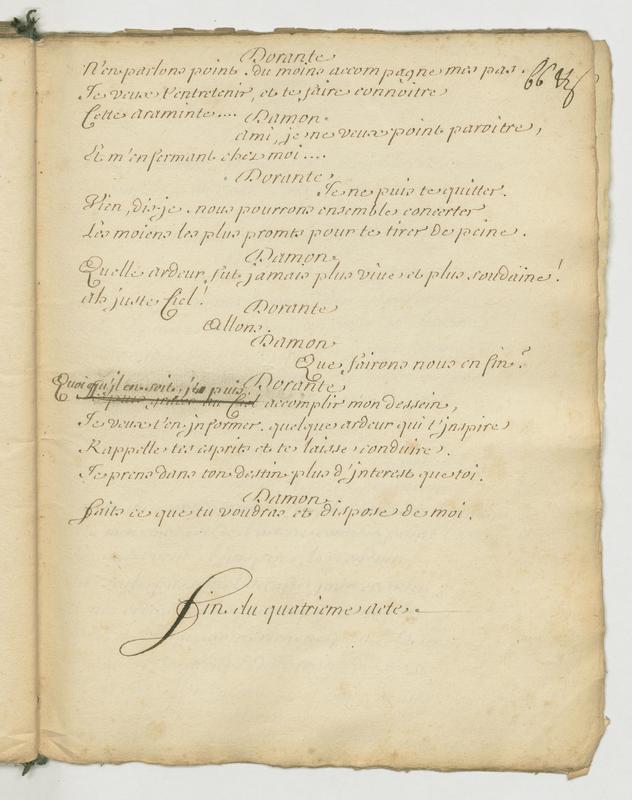 Dorante
N'en parlons point. du moins accompagne mes pas.
66
Je veux t'entretenir, et te faire connoitre
Cette araminte....
Damon.
ami, je ne veux point paroitre,
Et m'enfermant chez moi....
Dorante
Je ne puis te quitter.
Vien, dis-je. nous pourrons ensemble concerter
Les moiens les plus promts pour te tirer de peine.
Damon.
Quelle ardeur fut jamais plus vive et plus soudaine!
ah juste Ciel!
Dorante
Allons.
Damon
Que fairons nous enfin?
Dorante
Quoi qu'il en soit, je puis
accomplir mon dessein,
Je veux t'en informer. quelque ardeur qui t'inspire
Rappelle tes esprits et te laisse conduire.
Je prens dans ton destin plus d'interest que toi.
Damon.
faits ce que tu voudras et dispose de moi.
Fin du quatrieme acte.